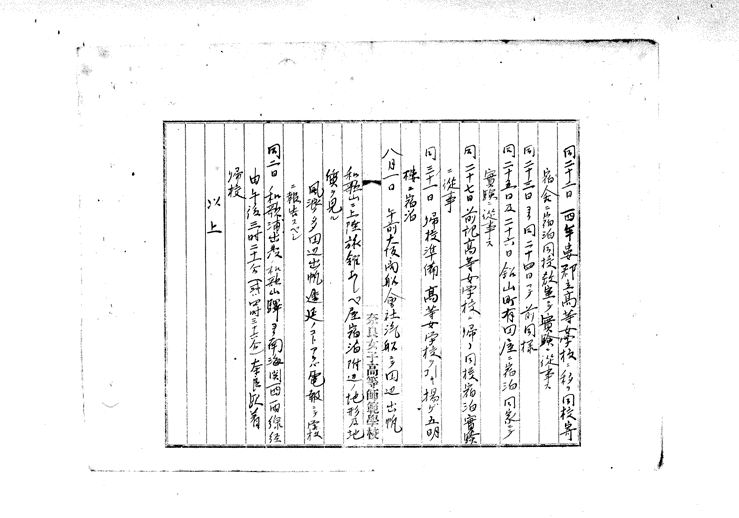 同二十二日 西牟婁郡立高等女学校ニ移リ同校寄
宿舎ニ宿泊同校教室ニテ實験ニ從事ス
同二十三日ヨリ同二十四日マデ前同様
同二十五日及二十六日 町有田屋ニ宿泊同家ニテ
實験ニ從事ス
同二十七日前記高等女学校ニ帰リ同校宿泊實験
ニ從事
同三十一日 帰校準備高等女学校ヲ引キ揚ゲ五明
樓ニ宿泊
八月一日 午前大阪商船會社汽船ニテ田辺出帆
和歌山ニ上陸旅館あしべ屋宿泊附近ノ地形及地
質ヲ見ル
風浪ノ 田辺出帆遅延ノ 電報ニテ学校
ニ報告スベシ
同二日 和歌浦出発和歌山駅ヨリ南海関西線経
由午後三時二十一分 奈良駅着
帰校
以上
奈良女子高等師範學校